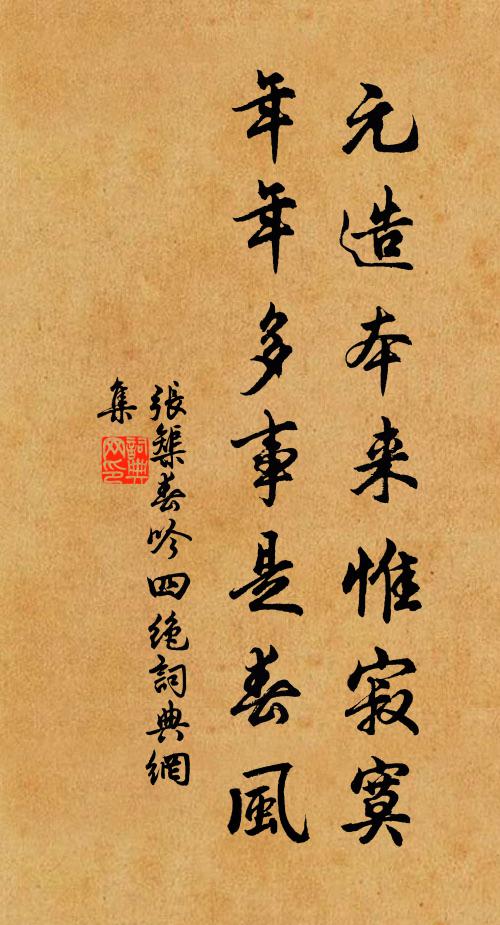 元造本来惟寂寞
年年多事是春風
張榘春吟四絶詞典網
集
詞典
网印